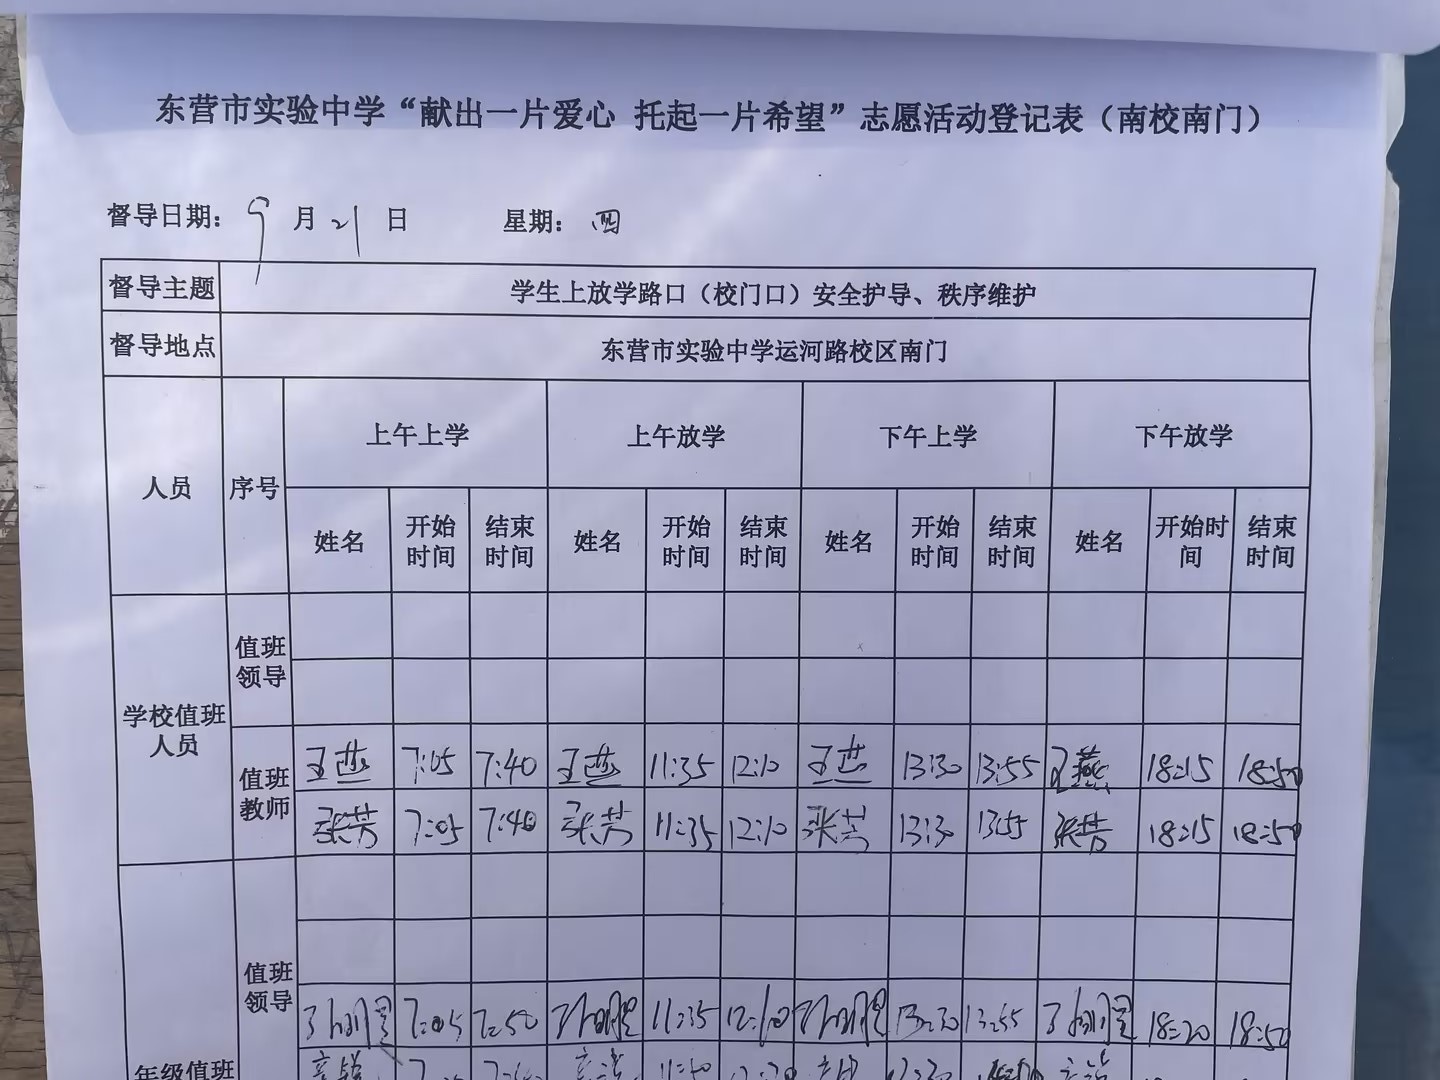 东营市实验中学“献出一片爱心 托起一片希望”志愿活动登记表（南校南门）
督导日期： 9 月 21 日 星期： 四
督导主题 学生上放学路口（校门口）安全护导、秩序维护
督导地点 东营市实验中学运河路校区南门
人员 序号 上午上学 上午放学 下午上学 下午放学
姓名 开始时间 结束时间 姓名 开始时间 结束时间 姓名 开始时间 结束时间 姓名 开始时间 结束时间
学校值班人员 值班领导
值班教师 王燕 7:05 7:40 王燕 11:35 12:10 王燕 13:30 13:55 王燕 18:15 18:50
张芳 7:05 7:40 张芳 11:35 12:10 张芳 13:30 13:55 张芳 18:15 18:50
年级值班 值班领导
7:05 7:50 11:35 12:10 13:30 13:55 18:20 18:50
11:50